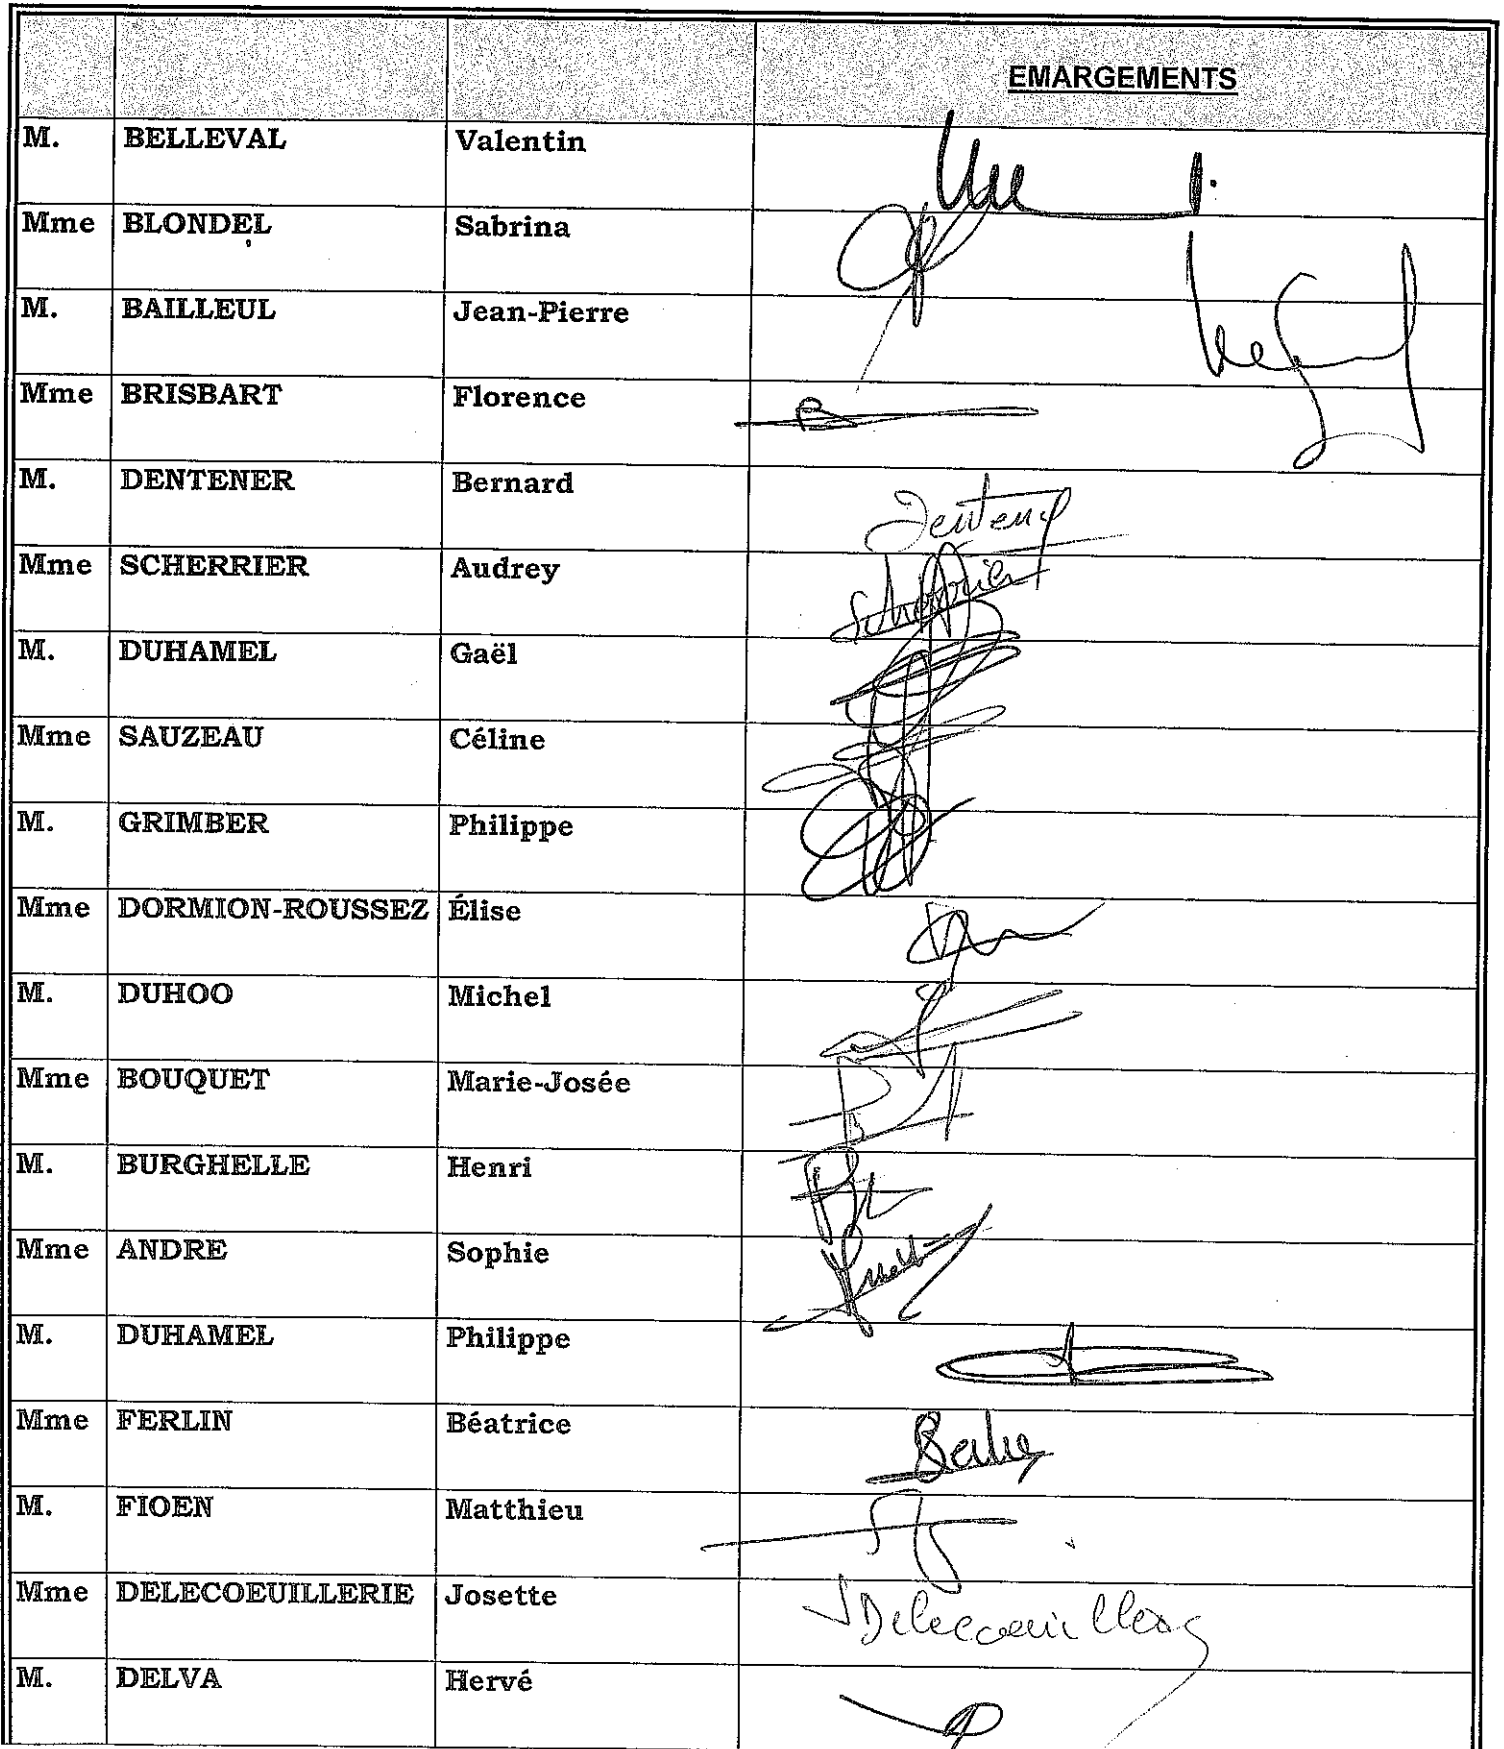 EMARGEMENTS
M. BELLEVAL Valentin
Mme BLONDEL Sabrina
M. BAILLEUL Jean-Pierre
Mme BRISBART Florence
M. DENTENER Bernard
Mme SCHERRIER Audrey
Scherrier
M. DUHAMEL Gaël
Mme SAUZEAU Céline
M. GRIMBER Philippe
Mme DORMION-ROUSSEZ Élise
M. DUHOO Michel
Mme BOUQUET Marie-Josée
M. BURGHELLE Henri
Mme ANDRE Sophie
M. DUHAMEL Philippe
Mme FERLIN Béatrice
M. FIOEN Matthieu
Mme DELECOEUILLERIE Josette
M. DELVA Hervé